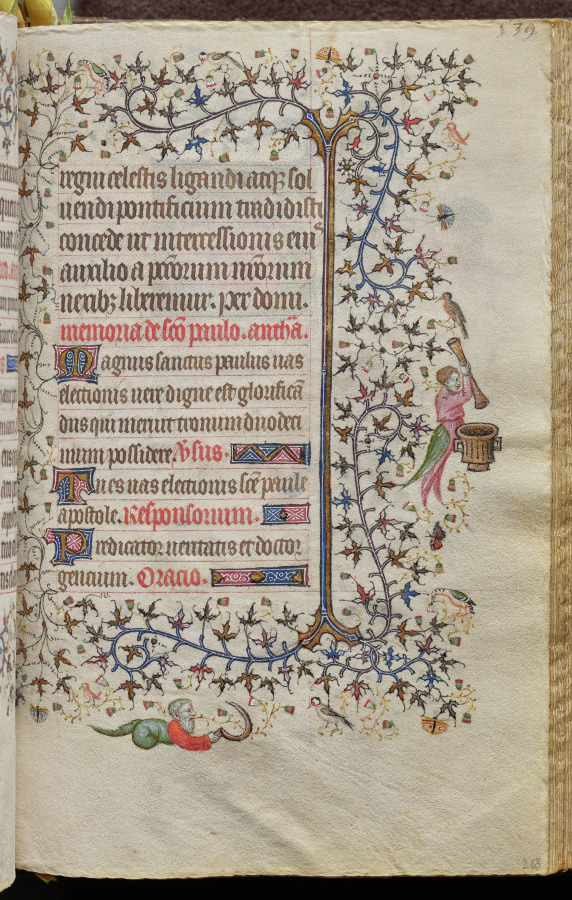 539
regni celestis ligandi atqꝫ sol
uendi pontificium tradidisti
concede ut intercessionis eiuꝰ
auxilio a pccorum nrorum
nexibꝫ liberemur. per domi.
memoria de sco paulo. antha.
Magnus sanctus paulus uas
electionis uere digne est glorifica
dus qui meruit tronum duodeci
mum possidere. Vsus.
Tu es uas electionis sce paule
apostole. Responsorium.
Predicator ueritatis et doctor
gencium. Oracio.
263